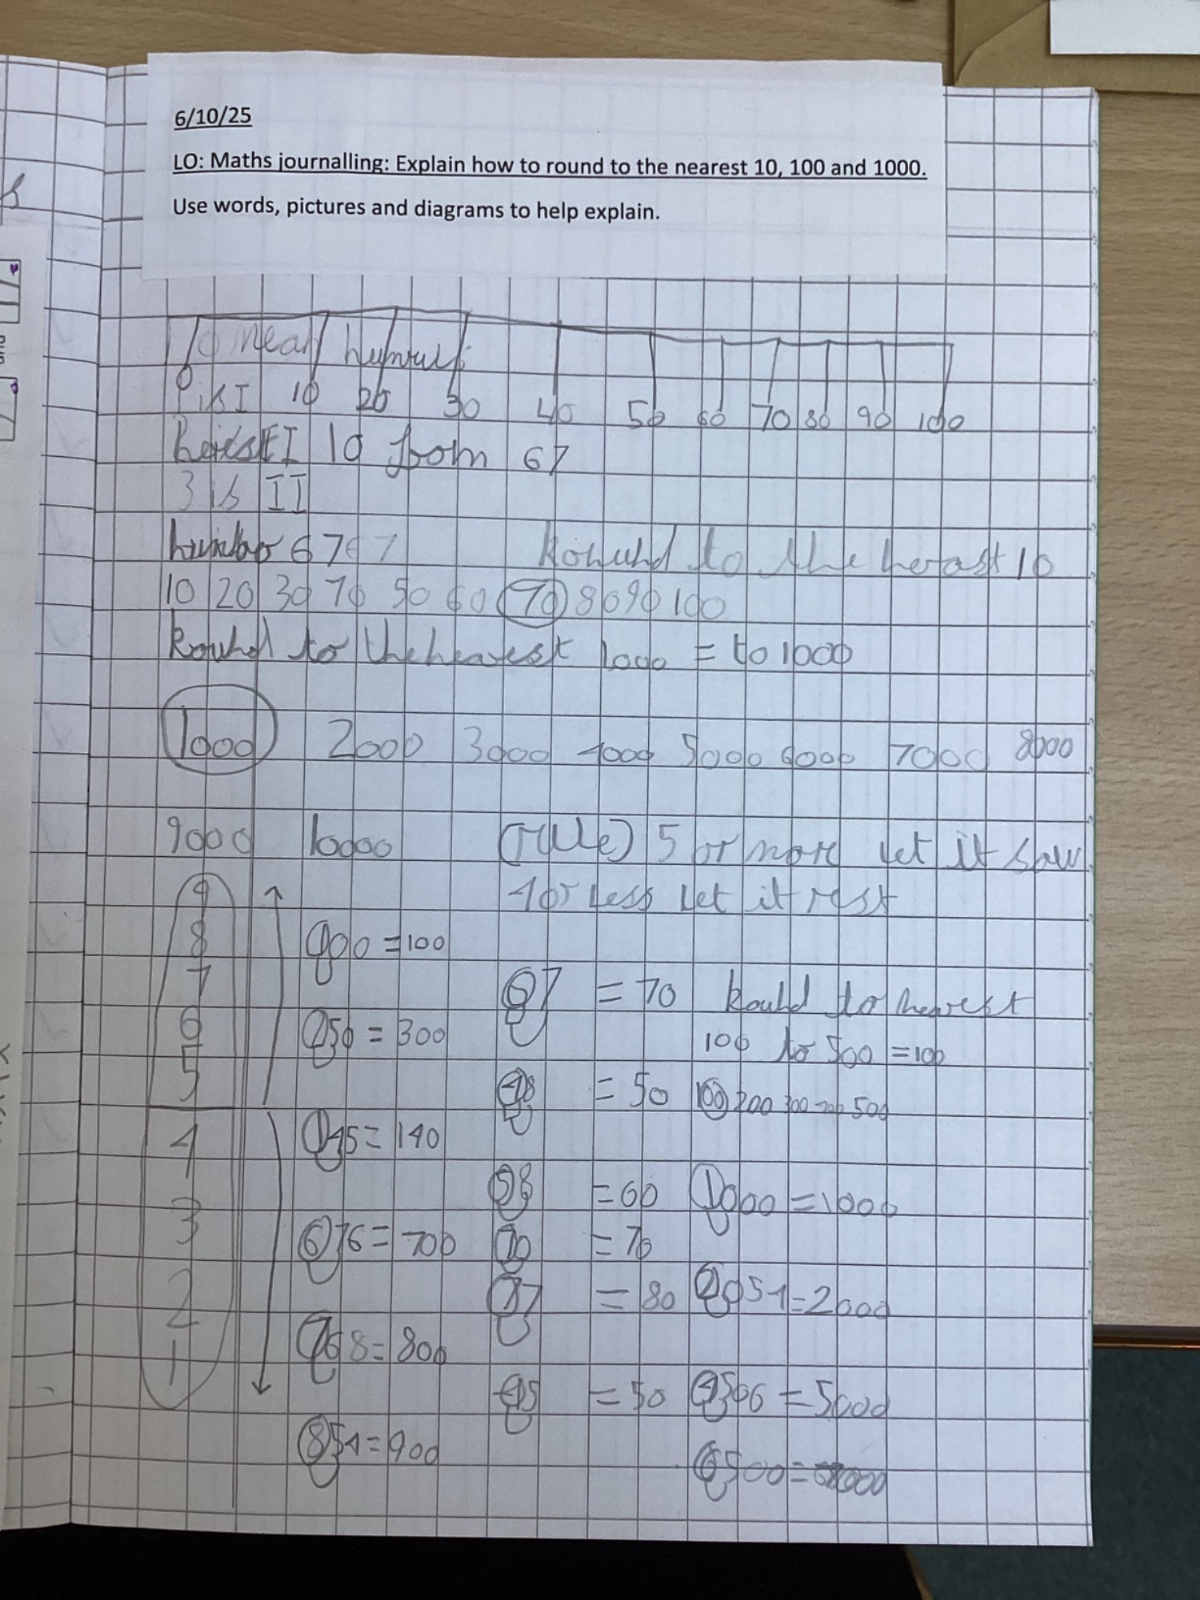 6/10/25
LO: Maths journalling: Explain how to round to the nearest 10, 100 and 1000.
Use words, pictures and diagrams to help explain.
10 20 30 40 50 60 70 80 90 100
10 from 67
3 is II
number 67 67 Rohund to the herast 10
10 20 30 70 50 60 70 80 90 100
Round to the hearest 1000 = to 1000
1000 2000 3000 4000 5000 6000 7000 8000
9000 10000 (rule) 5 or more let it
4 or less let it rest
9
8
7
6
5
4
3
2
1
100 = 100
250 = 300
145 = 140
676 = 700
768 = 800
854 = 900
67 = 70
48 = 50
58 = 60
70 = 70
77 = 80
45 = 50
Round to hearest
100 to 500 = 100
100 200 300 400 500
1000 = 1000
2054 = 2000
4566 = 5000
6500 =